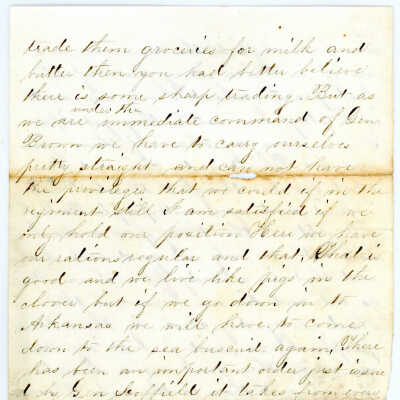 trade them groceries for milk and
butter then you had better believe
there is some sharp trading. But as
we are under the immediate command of Gen
Brown we have to carry ourselves
pretty straight and can not have
the privileges that we could if in the
regiment Still I am satisfied if we
only hold our position Here we have
our rations regular and that, that is
good and we live like pigs in the
clover but if we go down in to
Arkansas we will have to come
down to the sea buscuit again, There
has been an important order just issue
d by Gen Scoffield it takes from every